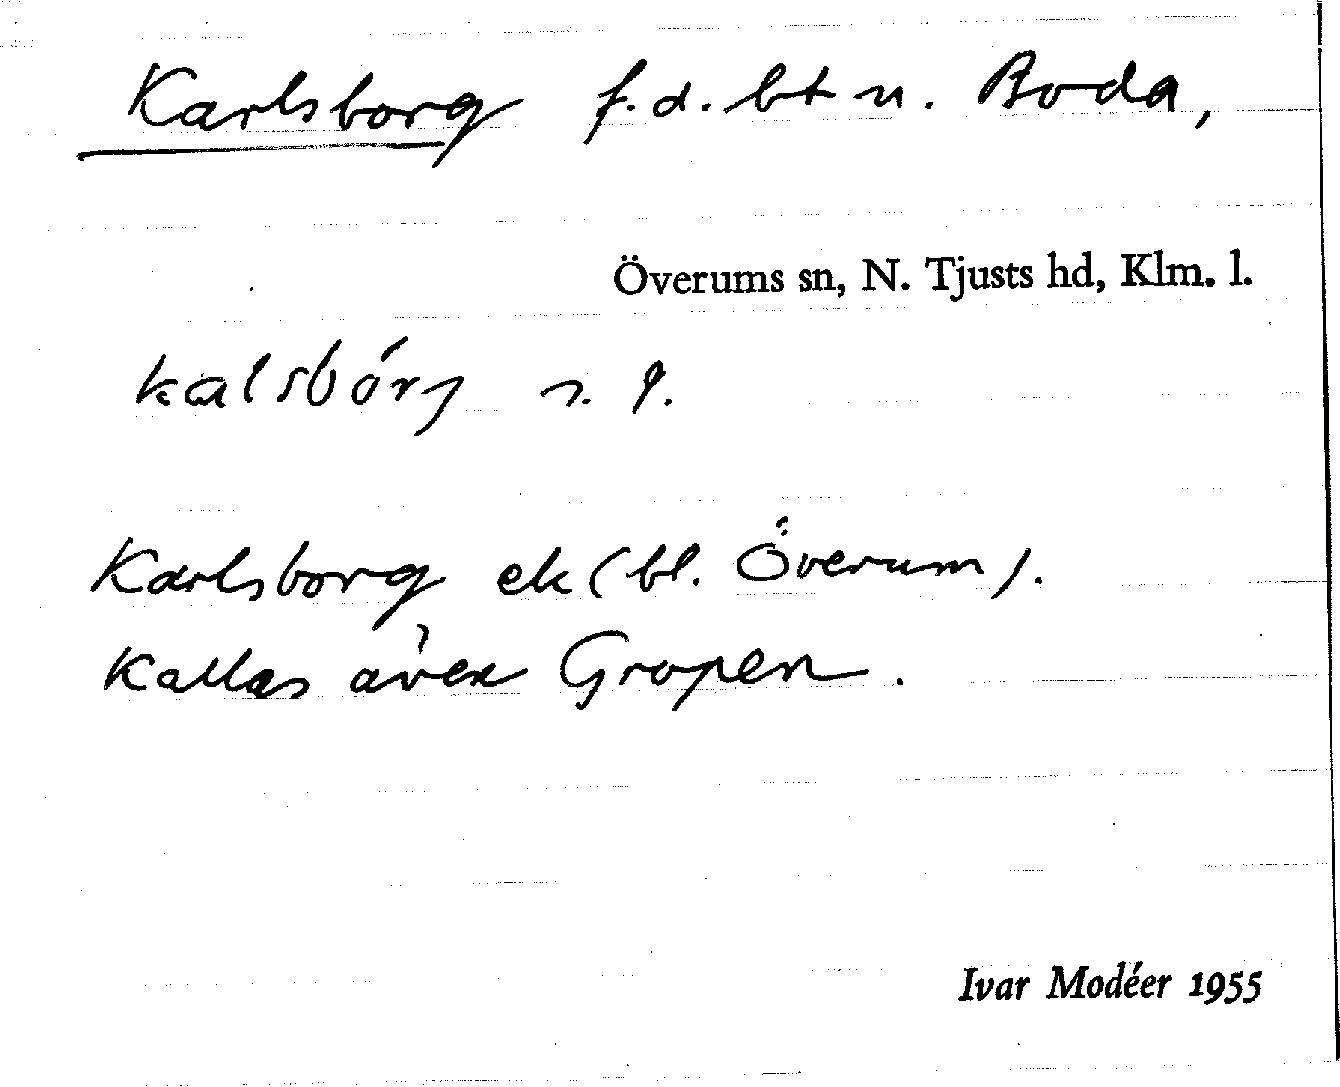 Karlsborg f.d. bt u. Boda,
Överums sn, N. Tjusts hd, Klm. l.
kalsbórj
Karlsborg ek (bl. Överum).
Kallas även Gropen.
Ivar Modéer 1955